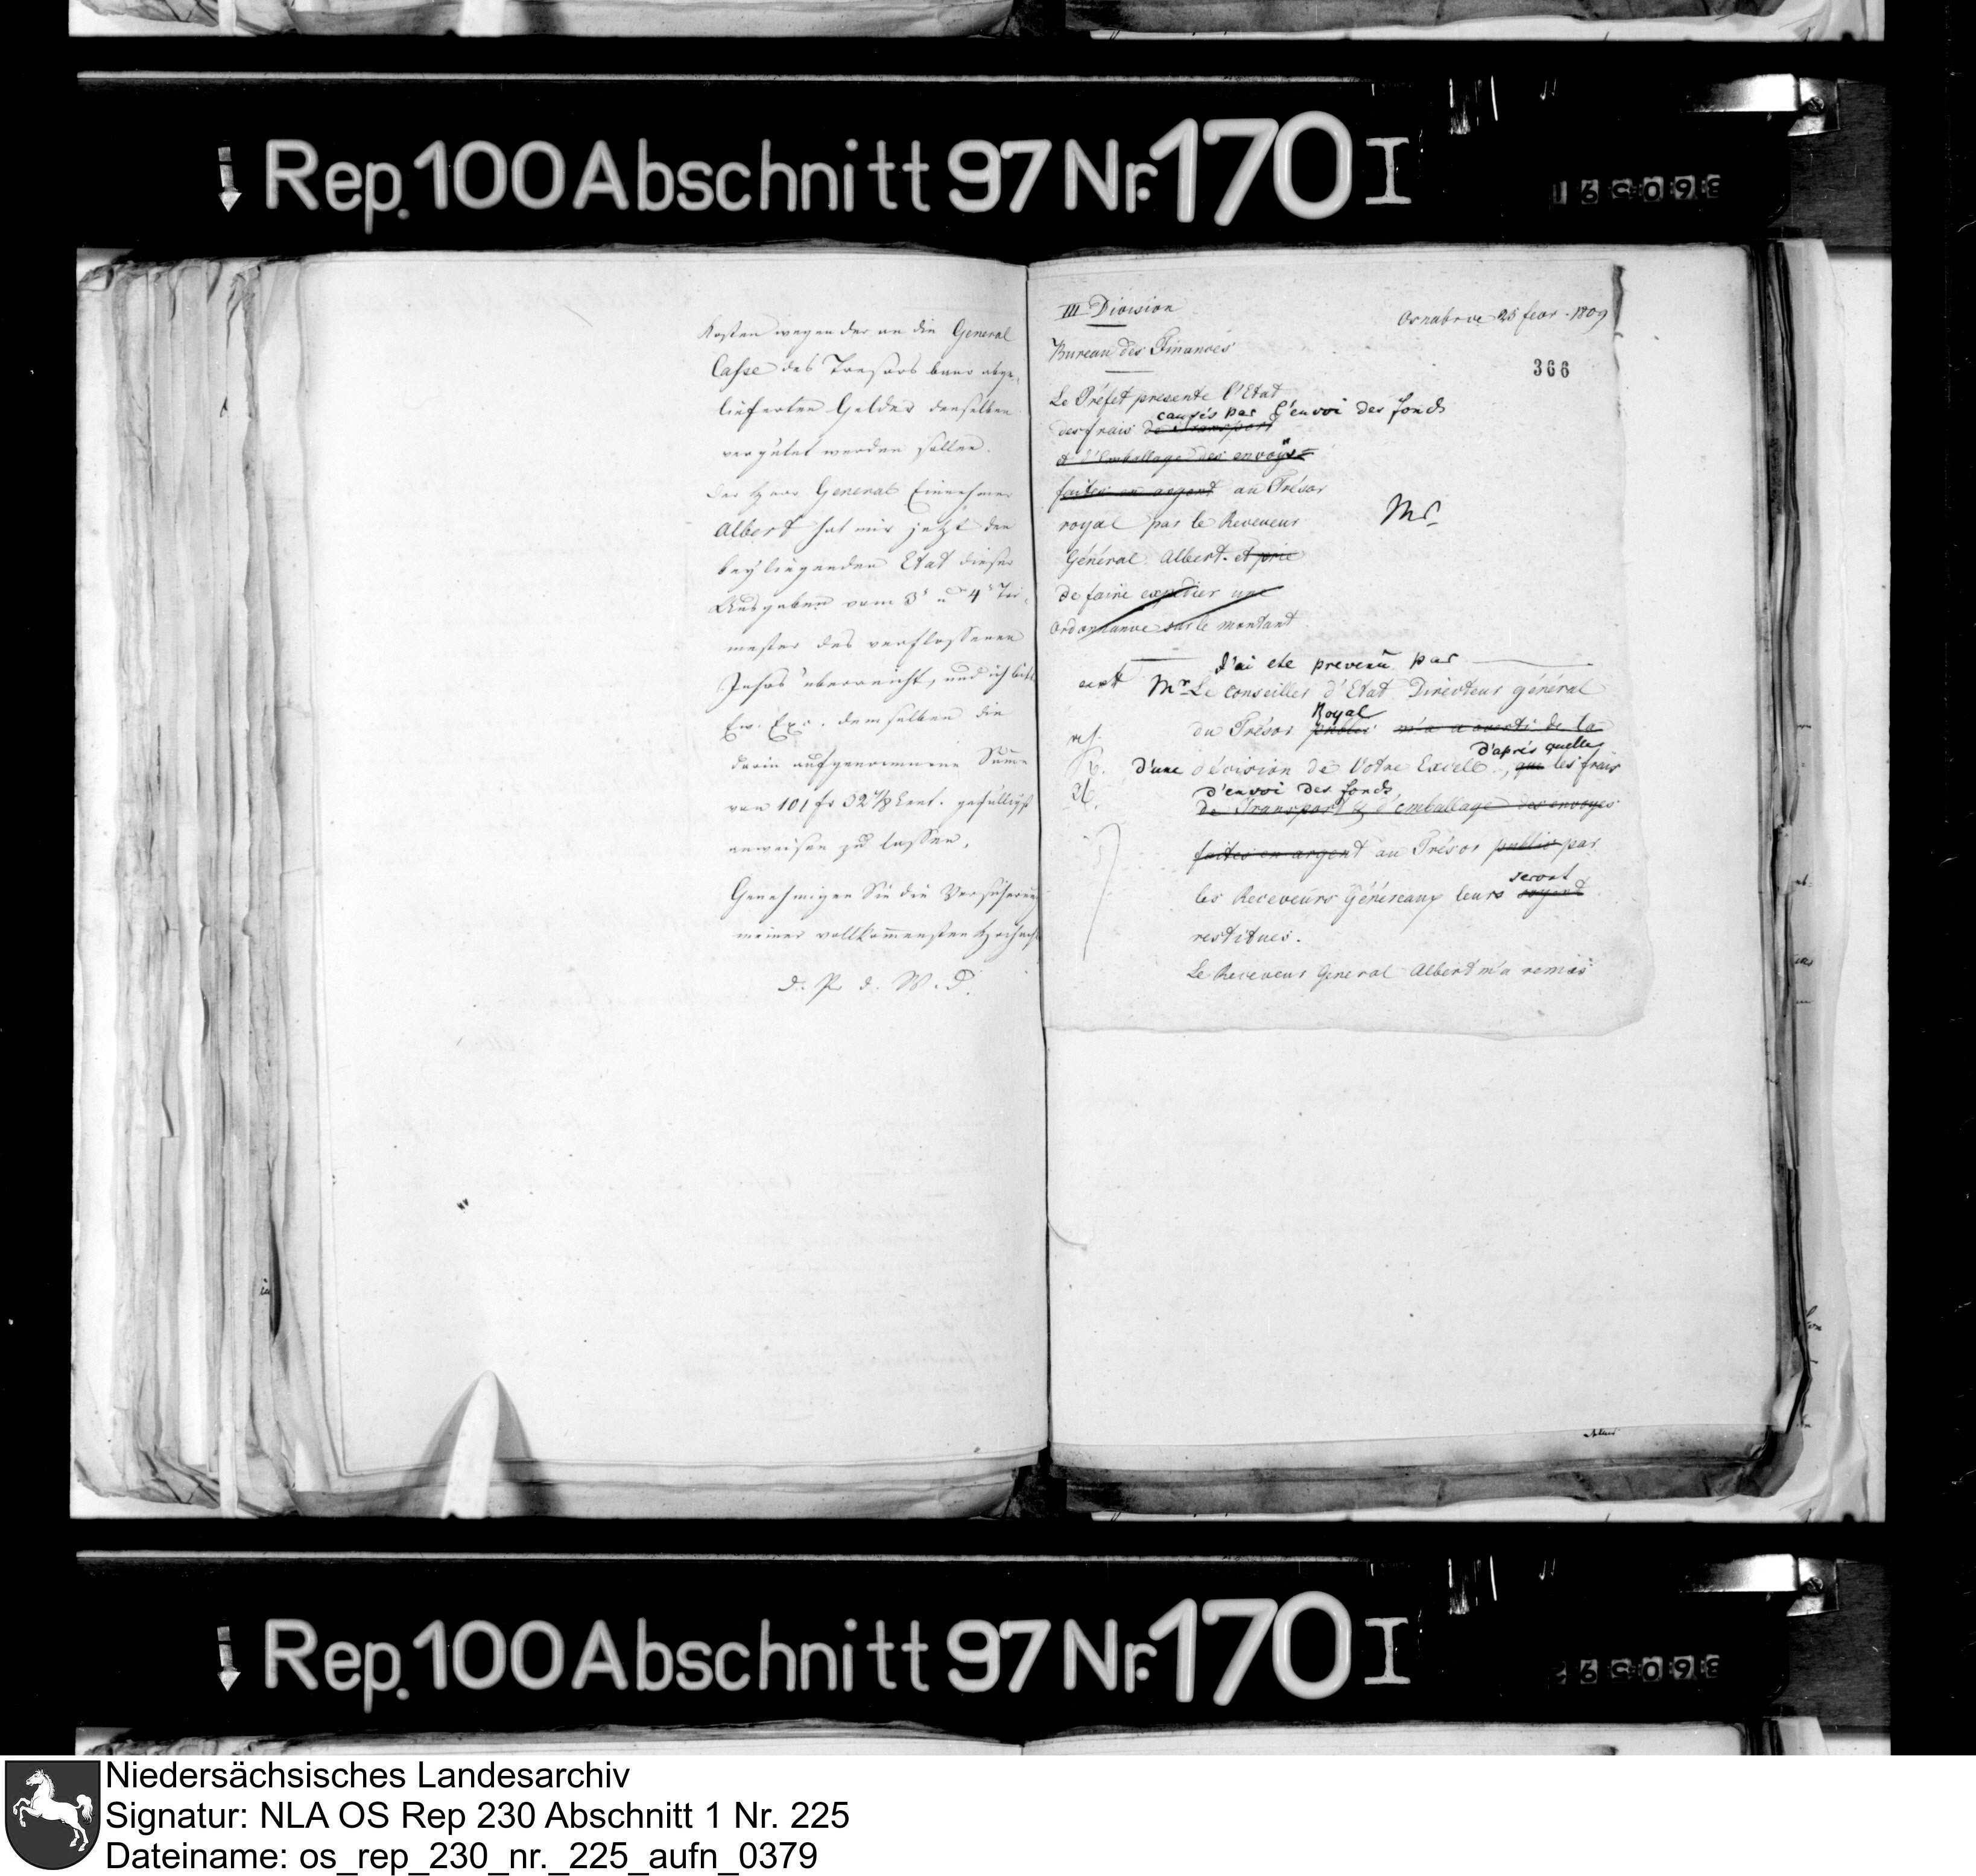 Rep. 100 Abschnitt 97 Nr. 170 I
Kosten wegen der an die General
Casse des Tresors baar abge-
lieferten Gelder denselben
vergütet werden sollen.
Der Herr General Einnehmer
Albert hat mir jetzt den
beyliegenden Etat dieser
Ausgaben vom 3t u 4t Tri-
mester des verflossenen
Jahrs überreicht, und ich bitte
Ew. Exc. demselben die
darin aufgenommene Summe
von 101 fr 32 Cent. gefälligst
anweisen zu lassen.
Genehmigen Sie die Versicherung
meiner vollkommensten Hochach
d. P. d. W. D.
III Division
Osnabruc 25 fevr. 1809
Bureau des Finances
366
Le Préfet presente l'Etat
causés par l'envoi des fonds
des frais de Transport
et d'Emballage des envoys
faites en argent au Trésor
royal par le Receveur
Mr
Général Albert. et prie
de faire expedier une
Ordonnance sur le montant
J'ai ete prevenu par
Mr Le conseiller d'Etat Directeur général
Royal
du Trésor public m'a averti de la
d'après quelle
d'une décision de Votre Excell., que les frais
d'envoi des fonds
de Transport & d'emballage des envoyes
faites en argent au Trésor public par
seront
les Receveurs Généreaux leurs soyent
restitues.
Le Receveur General Albert m'a remis
Rep. 100 Abschnitt 97 Nr. 170 I
Niedersächsisches Landesarchiv
Signatur: NLA OS Rep 230 Abschnitt 1 Nr. 225
Dateiname: os_rep_230_nr._225_aufn_0379